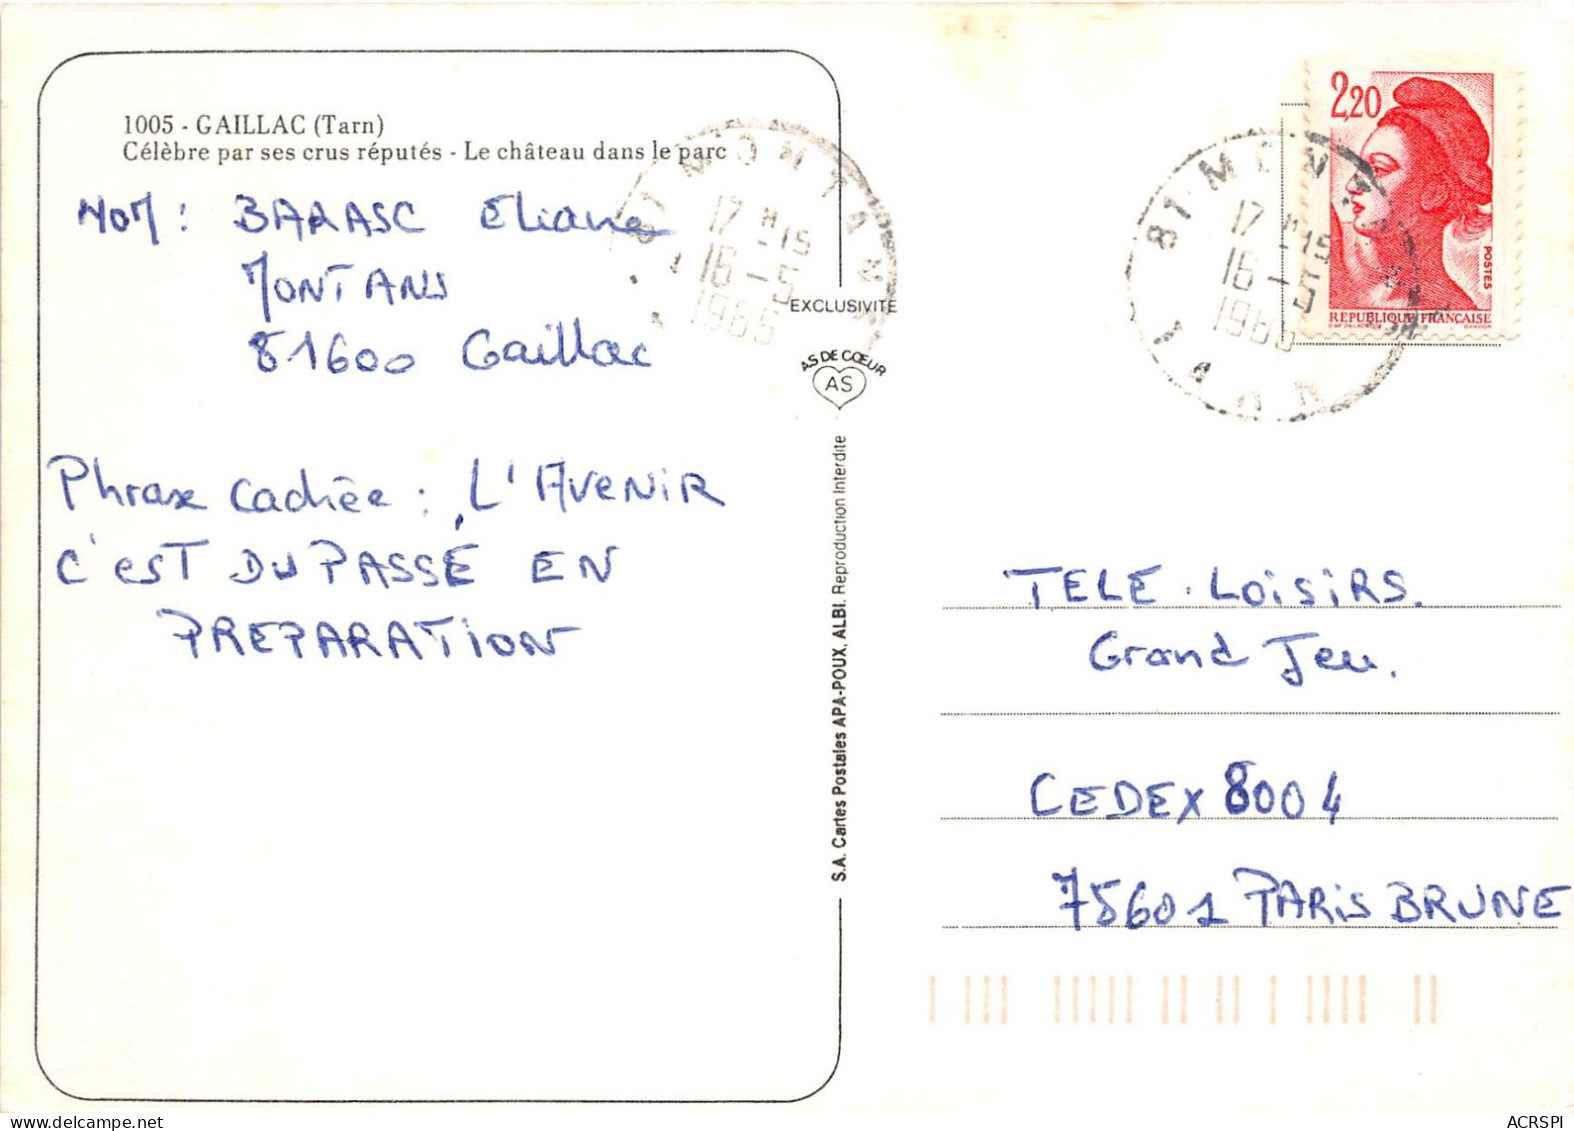 1005 - GAILLAC (Tarn)
Célèbre par ses crus réputés - Le château dans le parc
NOM : BARASC Eliane
MONTANS
81600 Gaillac
Phrase cachée : L'AVENIR
C'EST DU PASSÉ EN
PREPARATION
EXCLUSIVITE
AS DE CŒUR
AS
S.A. Cartes Postales APA-POUX, ALBI. Reproduction Interdite
81 MONTANS
17 H 15
16 - 5
TARN
2,20
POSTES
REPUBLIQUE FRANÇAISE
81 MONTANS
17 H 15
16 - 5
TARN
TELE-LOISIRS.
Grand Jeu.
CEDEX 8004
75601 PARIS BRUNE
ACRSPI